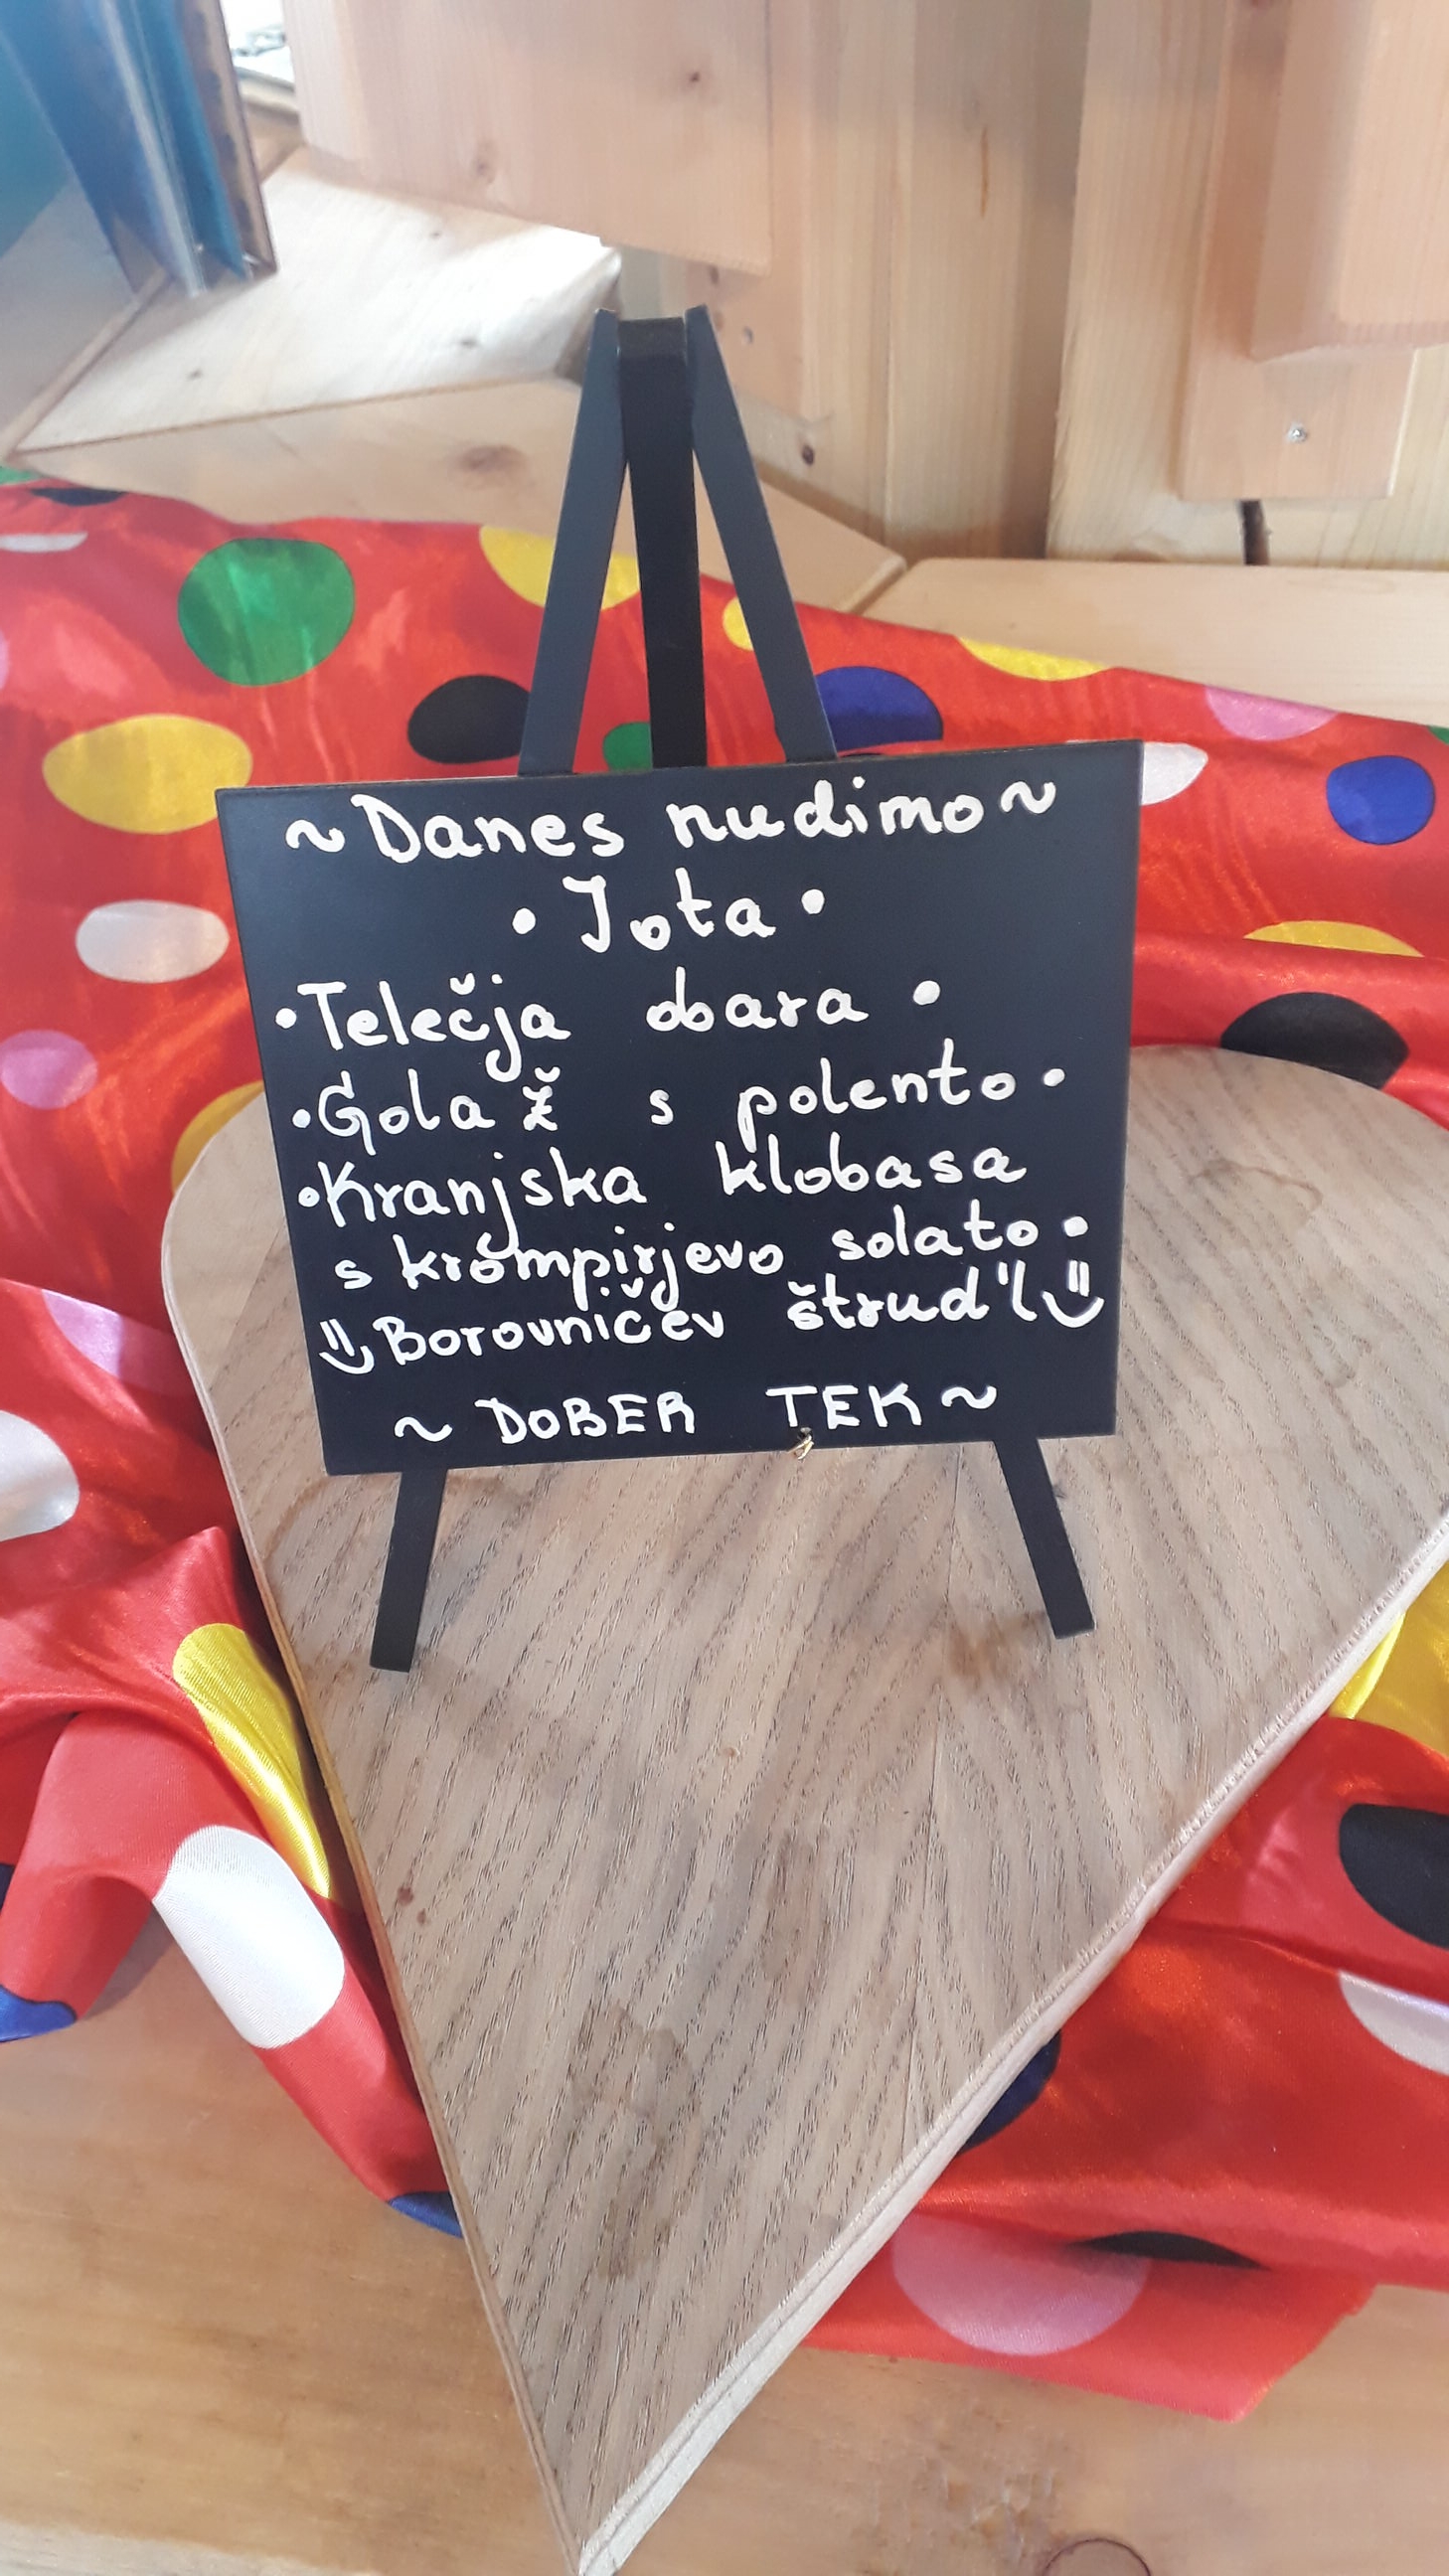 ~ Danes nudimo ~
• Jota •
• Telečja obara •
• Golaž s polento •
• Kranjska klobasa
s krompirjevo solato •
Borovničev štrud'l
~ DOBER TEK ~